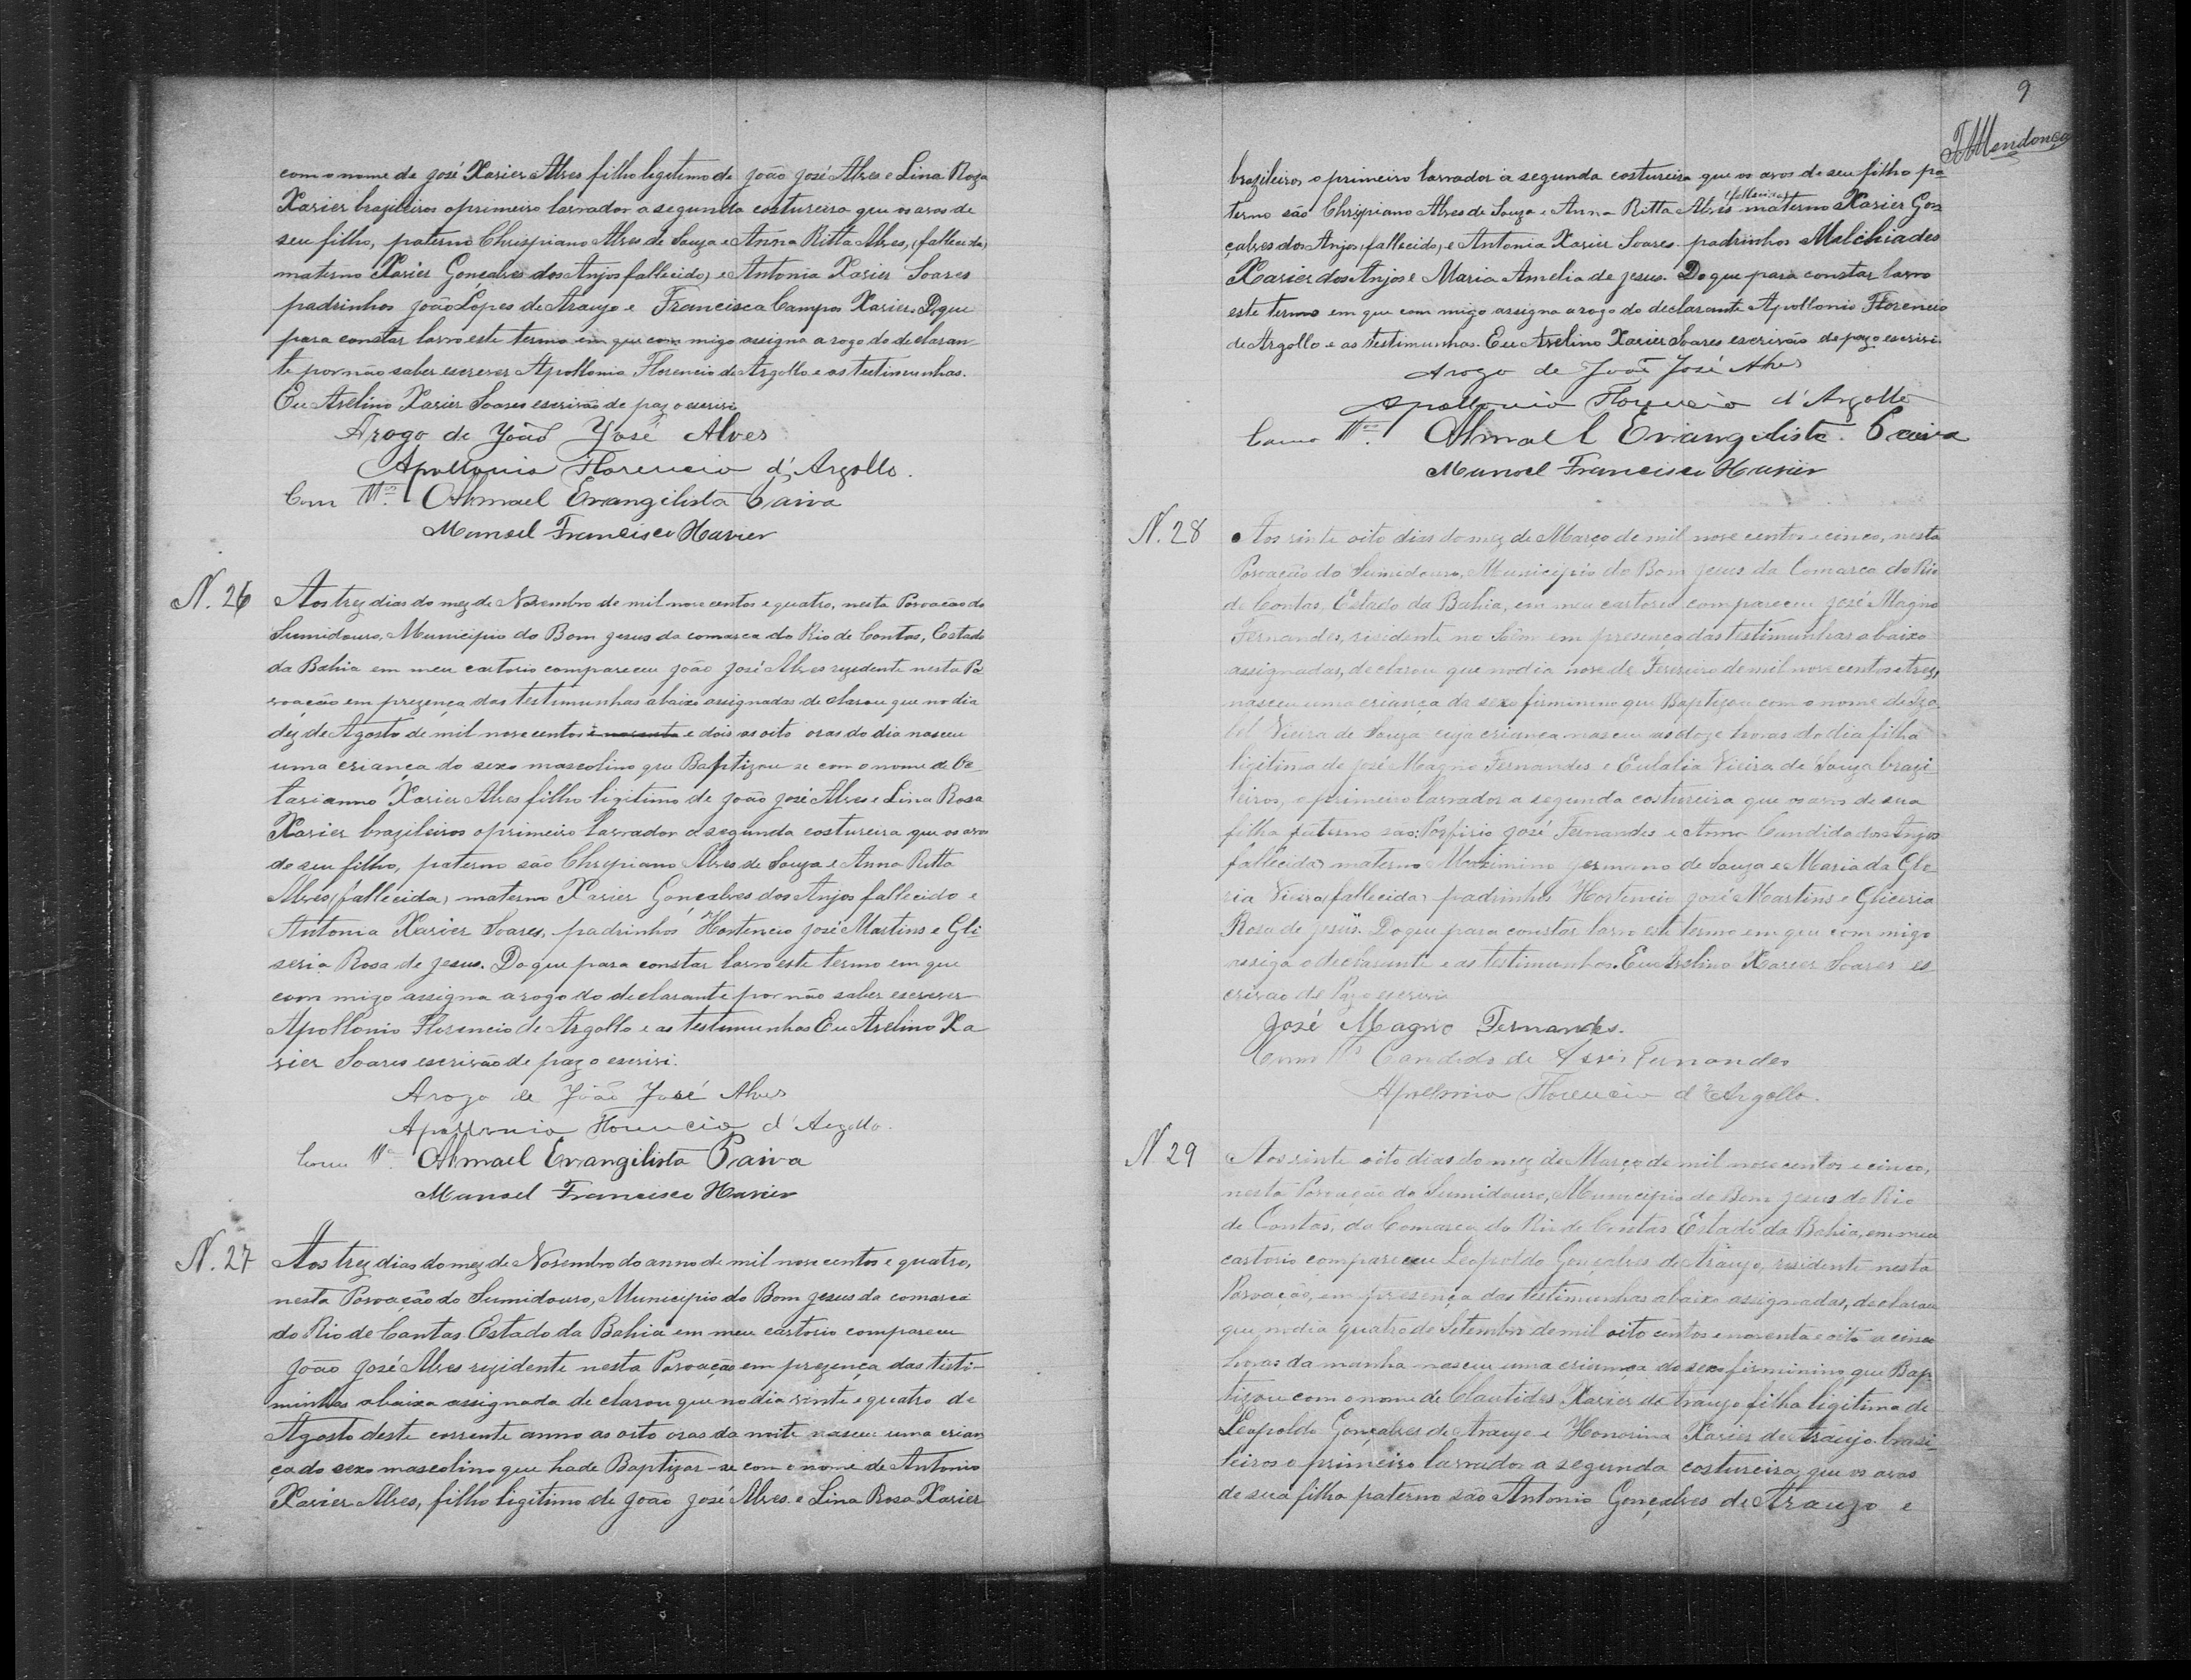 com o nome de José Xavier Alves filho legitimo de João José Alves e Lina Roza
Xavier brazileiros o primeiro lavrador a segunda costureira que os avos de
seu filho, paterno Chrispiano Alves de Souza e Anna Ritta Alves, (fallecida)
materno Xavier Gonçalves dos Anjos fallecido, e Antonia Xavier Soares
padrinhos João Lopes de Araujo e Francisca Campos Xavier. Do que
para constar lavro este termo em que com migo assigna a rogo do declaran-
te por não saber escrever Apollonio Florencio de Argollo e as testimunhas.
Eu Avelino Xavier Soares escrivão de paz o escrivi
Arogo de João José Alves
Apollonio Florencio d'Argollo.
Com Tas. Ahmael Evangilista Paiva
Manoel Francisco Xavier
N. 26 Aos trez dias do mez de Novembro de mil nove centos e quatro, nesta Povoação do
Sumidouro, Municipio do Bom Jesus da comarca do Rio de Contas, Estado
da Bahia em meu cartorio compareceu João José Alves rezidente nesta Po
voação em prezença das testimunhas abaixo assignadas declarou que no dia
dez de Agosto de mil nove centos e noventa e dois as oito oras do dia nasceu
uma criança do sexo mascolino que Baptizou se com o nome de Oc
tavianno Xavier Alves filho ligitimo de João José Alves e Lina Rosa
Xavier brazileiros o primeiro lavrador a segunda costureira que os avos
de seu filho, paterno são Chrispiano Alves de Souza e Anna Ritta
Alves (fallecida) materno Xavier Gonçalves dos Anjos fallecido e
Antonia Xavier Soares, padrinhos Hortencio José Martins e Gli
seria Rosa de Jesus. Do que para constar lavro este termo em que
com migo assigna a rogo do declarante por não saber escrever
Apollonio Florencio de Argollo e as testimunhas Eu Avelino Xa
vier Soares escrivão de paz o escrivi.
Arogo de João José Alves
Apollonio Florencio d'Argollo.
Como Tas. Ahmael Evangilista Paiva
Manoel Francisco Xavier
N. 27 Aos trez dias do mez de Novembro do anno de mil nove centos e quatro,
nesta Povoação do Sumidouro, Municipio do Bom Jesus da comarca
do Rio de Contas Estado da Bahia em meu cartorio compareceu
João José Alves rezidente nesta Povoação em prezença das testi-
munhas abaixa assignada declarou que no dia vinte e quatro de
Agosto deste corrente anno as oito oras da noite nasceu uma crian
ça do sexo mascolino que hade Baptizar-se com o nome de Antonio
Xavier Alves, filho ligitimo de João José Alves e Lina Rosa Xavier
9
Mendonça
brazileiros o primeiro lavrador a segunda costureira que os avos de seu filho pa
terno são Chrispiano Alves de Souza e Anna Ritta Alves (fallecida) materno Xavier Gon
çalves dos Anjos, fallecido, e Antonia Xavier Soares padrinhos Melchiades
Xavier dos Anjos e Maria Amelia de Jesus. Do que para constar lavro
este termo em que com migo assigna a rogo do declarante Apollonio Florencio
de Argollo e as testimunhas. Eu Avelino Xavier Soares escrivão de paz o escrivi.
Arogo de João José Alves
Apollonio Florencio d'Argollo
Como Tas. Ahmael Evangelista Paiva
Manoel Francisco Xavier
N. 28 Aos vinte oito dias do mez de Março de mil nove centos e cinco, nesta
Povoação do Sumidouro, Municipio do Bom Jesus da Comarca do Rio
de Contas, Estado da Bahia, em meu cartorio compareceu José Magno
Fernandes, risidente no em presença das testimunhas abaixo
assignadas, declarou que no dia nove de Fevereiro de mil nove centos e trez,
nasceu uma criança do sexo firminino que Baptizou com o nome de Iza
bel Vieira de Souza cuja criança nasceu as doze horas do dia filha
ligitima de José Magno Fernandes e Eulalia Vieira de Souza brazi
leiros, o primeiro lavrador a segunda costureira que os avos de sua
filha paterno são: Porfirio José Fernandes e Anna Candida dos Anjos
fallecida) materno Maximino Germano de Souza e Maria da Glo
ria Vieira (fallecida) padrinhos Hortencio José Martins e Gliceria
Rosa de Jesus. Do que para constar lavro este termo em que com migo
assiga o declarante e as testimunhas. Eu Avelino Xavier Soares es
crivão de Paz o escrivi
José Magno Fernandes.
Como Tas Candido de Assis Fernandes
Apollonio Florencio d'Argollo.
N 29 Aos vinte oito dias do mez de Março de mil nove centos e cinco,
nesta Povoação do Sumidouro, Municipio do Bom Jesus do Rio
de Contas, da Comarca do Rio de Contas Estado da Bahia, em meu
cartorio compareceu Leopoldo Gonçalves de Araujo, risidente nesta
Povoação, em presença das testimunhas abaixo assignadas, declarou
que no dia quatro de Setembro de mil oito centos e noventa e oito a cinco
horas da manha nasceu uma criança do sexo firminino que Bap-
tizou com o nome de Clautides Xavier de Araujo filha ligitima de
Leopoldo Gonçalves de Araujo e Honorina Xavier de Araujo brazi-
leiros o primeiro lavrador a segunda costureira, que os avos
de sua filha paterno são Antonio Gonçalves de Araujo e